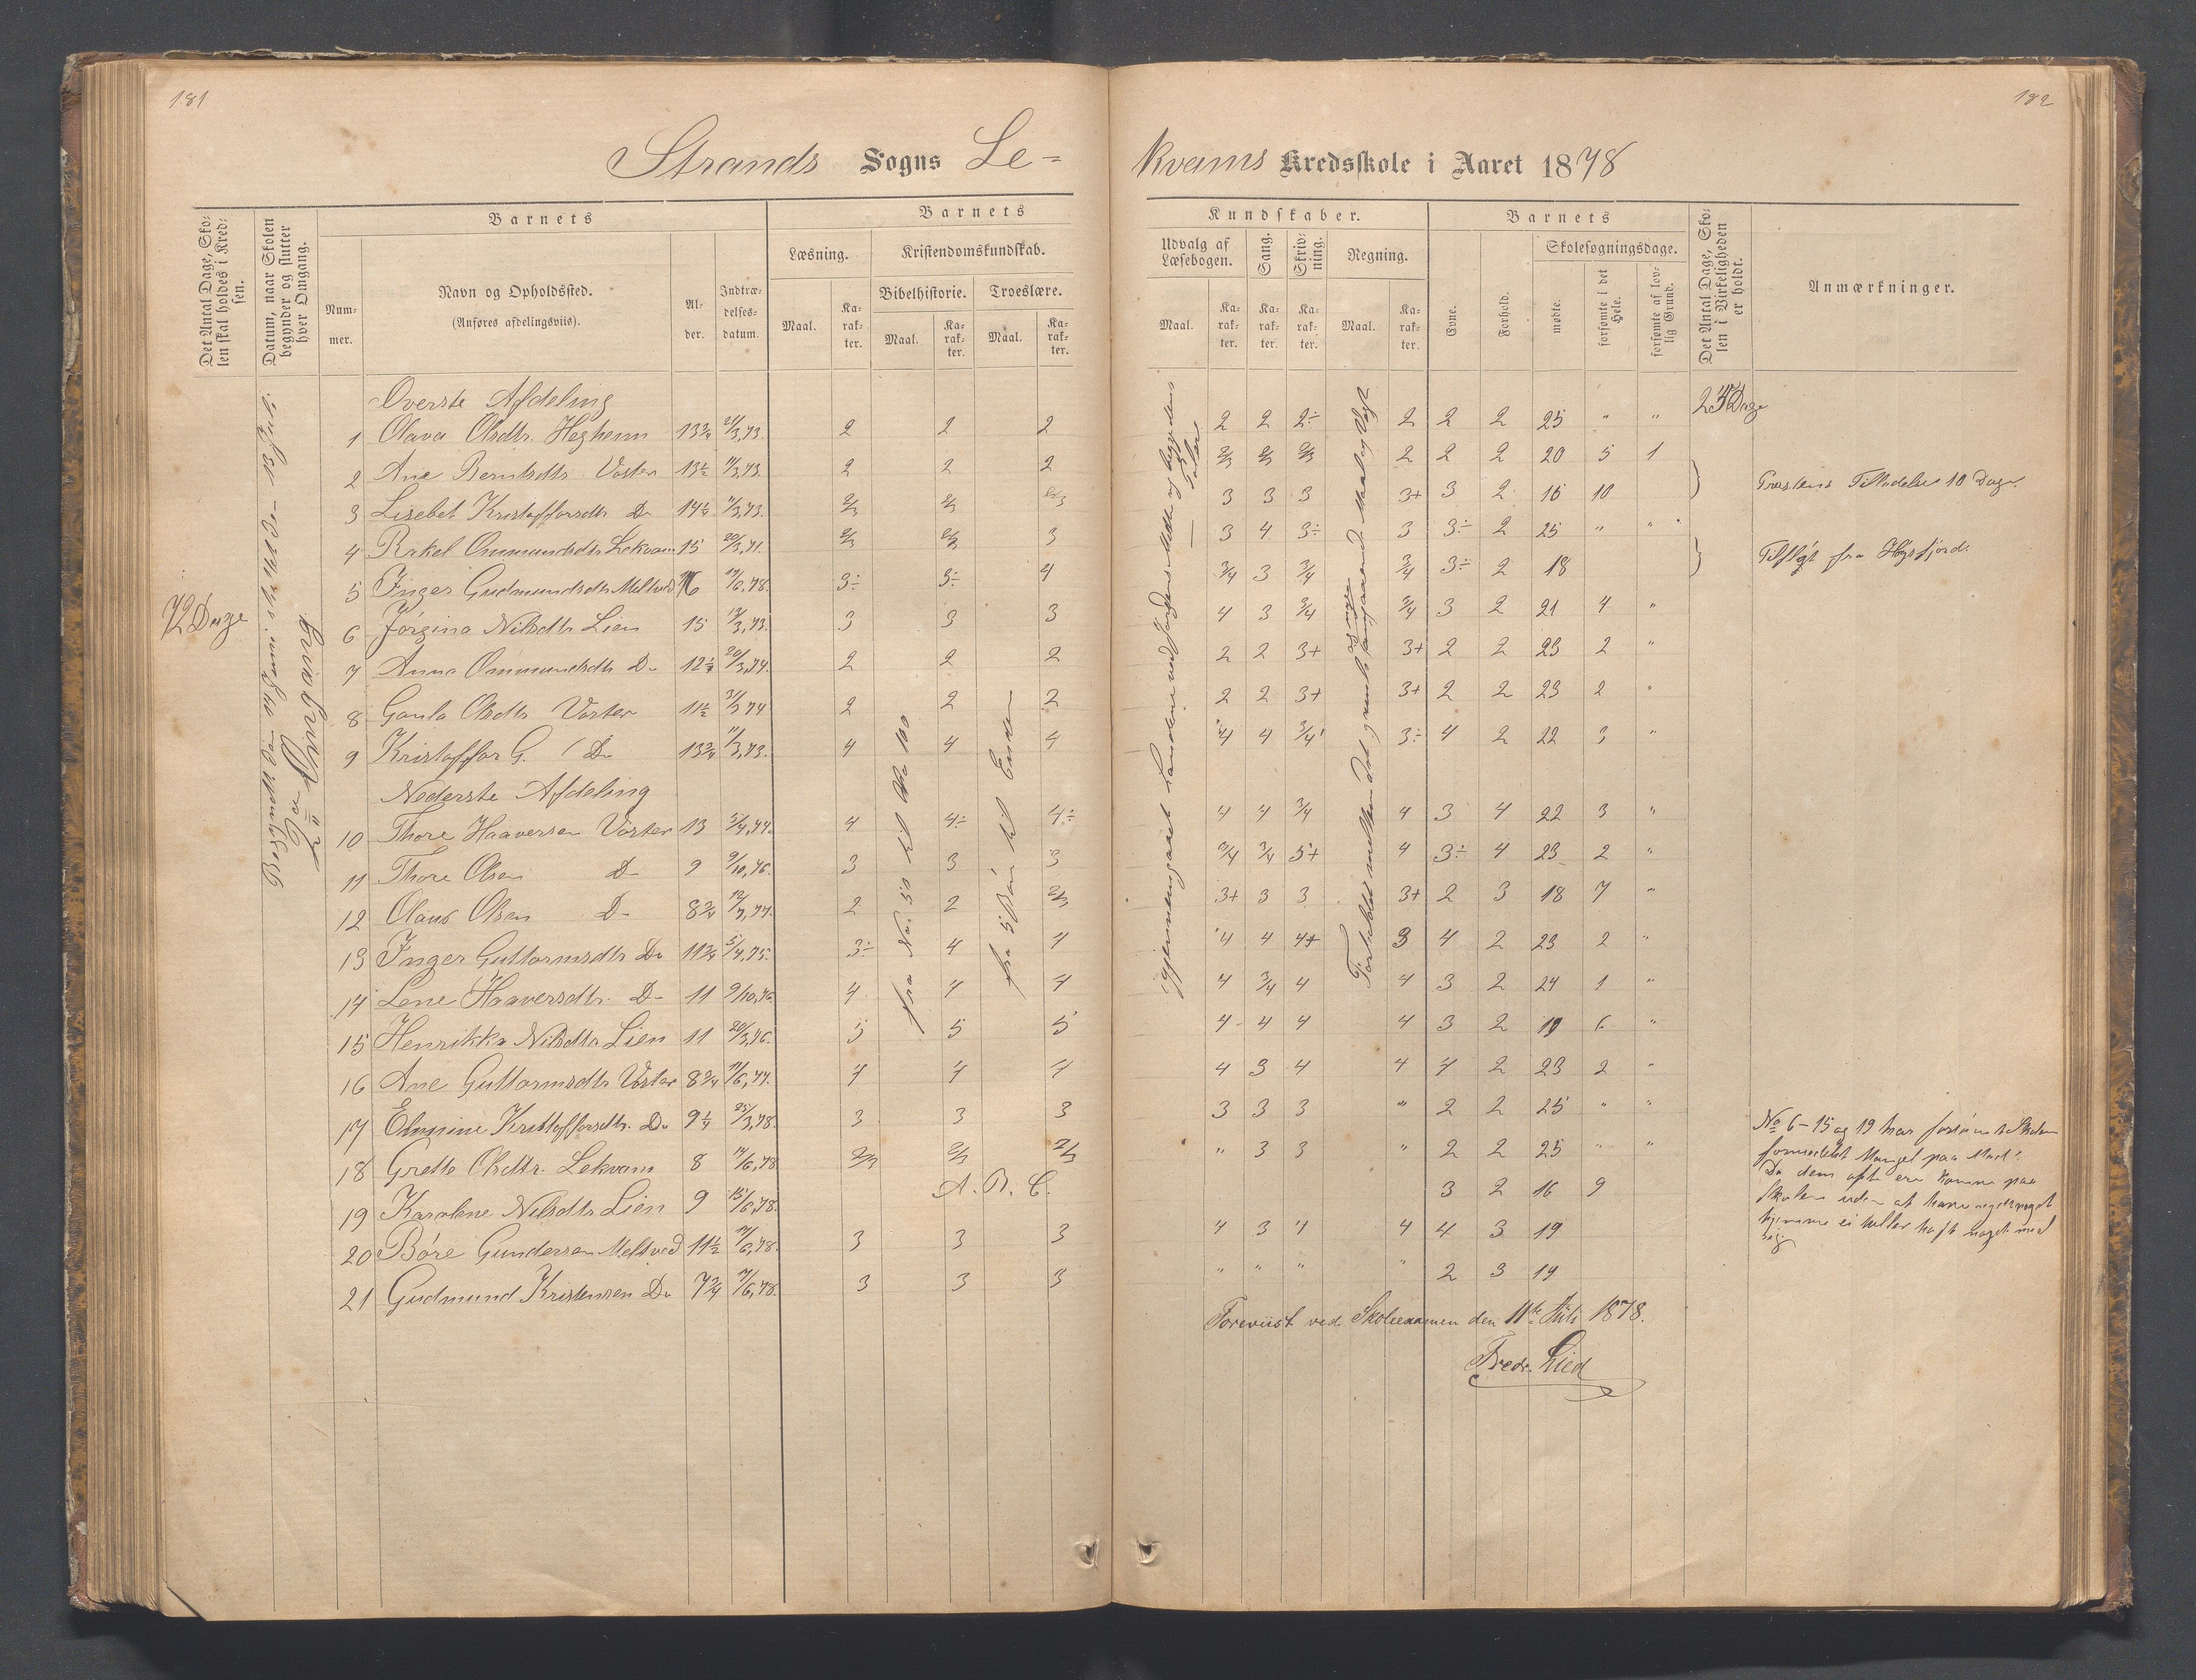 181
182
Strands Sogns Le-
kvams Kredsskole i Aaret 1878
Det Antal Dage, Skolen skal holdes i Kredsen.
Datum, naar Skolen begynder og slutter hver Omgang.
Nummer.
Barnets
Navn og Opholdssted.
(Anføres afdelingsviis).
Alder.
Indtrædelsesdatum.
Barnets
Læsning.
Kristendomskundskab.
Bibelhistorie. Troeslære.
Maal. Karakter. Maal. Karakter. Maal. Karakter.
Kundskaber.
Udvalg af Læsebogen. Sang. Skrivning. Regning.
Maal. Karakter. Karakter. Karakter. Maal. Karakter.
Barnets
Evne. Forhold.
Skolesøgningsdage.
mødte. forsømte i det Hele. forsømte af lovlig Grund.
Det Antal Dage, Skolen i Virkeligheden er holdt.
Anmærkninger.
72 Dage
fra No. 50 til
fra 5 Bøn til Enden
Overste Afdeling
1 Olava Olsdtr. Hegheim 13 3/4 21/3,73. 2 2 2 2 2 2÷ 2 2 2 25 " "
2 Ane Berntsdtr Voster 13 1/2 11/3,73. 2 2 2 2/3 2/3 2/3 2 2 2 20 5 1
3 Lisebet Kristoffersdtr Do 14 1/4 11/3,73. 2/3 2/3 2/3 3 3 3 3+ 3 2 15 10 Præstens Tilladelse 10 Dage.
4 Rakel Ommundsdtr Lekvam 15 20/3,71. 2/3 2/3 3 3 4 3÷ 3 3÷ 2 25 " "
5 Inger Gudmundsdtr Meltved 16 17/6,78. 3÷ 3÷ 4 3/4 3 3/4 3/4 3÷ 2 18 Tilflyt fra Høgsfjord.
6 Jørgina Nilsdtr Lien 15 17/3,73. 3 3 3 4 3 3/4 3/4 3 2 21 4 "
7 Anna Ommundsdtr Do 12 1/4 20/3,74. 2 2 2 2 2 3+ 3+ 2 2 23 2 "
8 Gonla Olsdtr Voster 11 1/2 31/3 74 2 2 2 2 2 3+ 3+ 2 2 23 2 "
9 Kristoffer G. Do 13 3/4 11/3,73. 4 4 4 4 4 3/4 3÷ 4 2 22 3 "
Nederste Afdeling
10 Thore Haaversen Voster 13 5/4,74. 4 4÷ 4÷ 4 4 3/4 4 3 4 22 3 "
11 Thore Olsen Do 9 9/10,76. 3 3 3 3/4 3/4 5+ 4 3÷ 4 23 2 "
12 Olaus Olsen Do 8 3/4 12/7,77. 2 2 2/3 3+ 3 3 3+ 2 3 18 7 "
13 Inger Guttormsdtr Do 11 3/4 5/4,75. 3÷ 4 4 4 4 4+ 3 4 2 23 2 "
14 Lene Haaversdtr. Do 11 9/10,76. 4 4 4 4 3/4 4 4 3 2 24 1 "
15 Henrikka Nilsdtr Lien 11 20/3,76. 5 5 5 4 4 4 4 3 2 19 6 "
16 Ane Guttormsdtr Voster 8 3/4 11/6,77. 4 4 4 4 3 4 4 4 2 23 2 "
17 Elmine Kristoffersdtr. Do 9 1/4 25/3,78. 3 3 3 3 3 3 " 2 2 25 " "
18 Grette Olsdtr. Lekvam 8 17/6,78 2/3 2/3 2/3 " 3 3 " 2 2 25 " "
19 Karoline Nilsdtr Lien 9 15/6,78. A. B. C. 3 2 16 9
20 Børe Gundersen Meltved 11 1/2 17/6,78. 3 3 3 4 3 4 4 4 3 19
21 Gudmund Kristensen Do 7 3/4 17/6,78. 3 3 3 " " " " 2 3 19
No 6-15 og 19 har forsømt Skolen
formedelst Mangel paa Mad.
Da dem ofte ere komne paa
Skolen uden at have
hjemme ei heller haft noget med
sig
Foreviist ved Skoleexamen den 11te Juli 1878.
Fredr. Lied